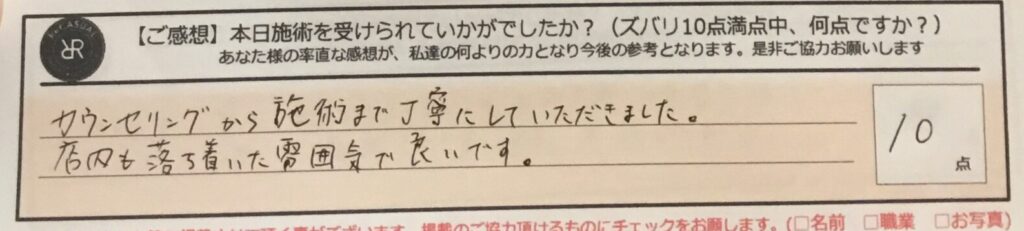 【ご感想】本日施術を受けられていかがでしたか？（ズバリ10点満点中、何点ですか？）
あなた様の率直な感想が、私達の何よりの力となり今後の参考となります。是非ご協力お願いします
カウンセリングから施術まで丁寧にしていただきました。
店内も落ち着いた雰囲気で良いです。
10
点
掲載のご協力頂けるものにチェックをお願します。(□名前 □職業 □お写真)